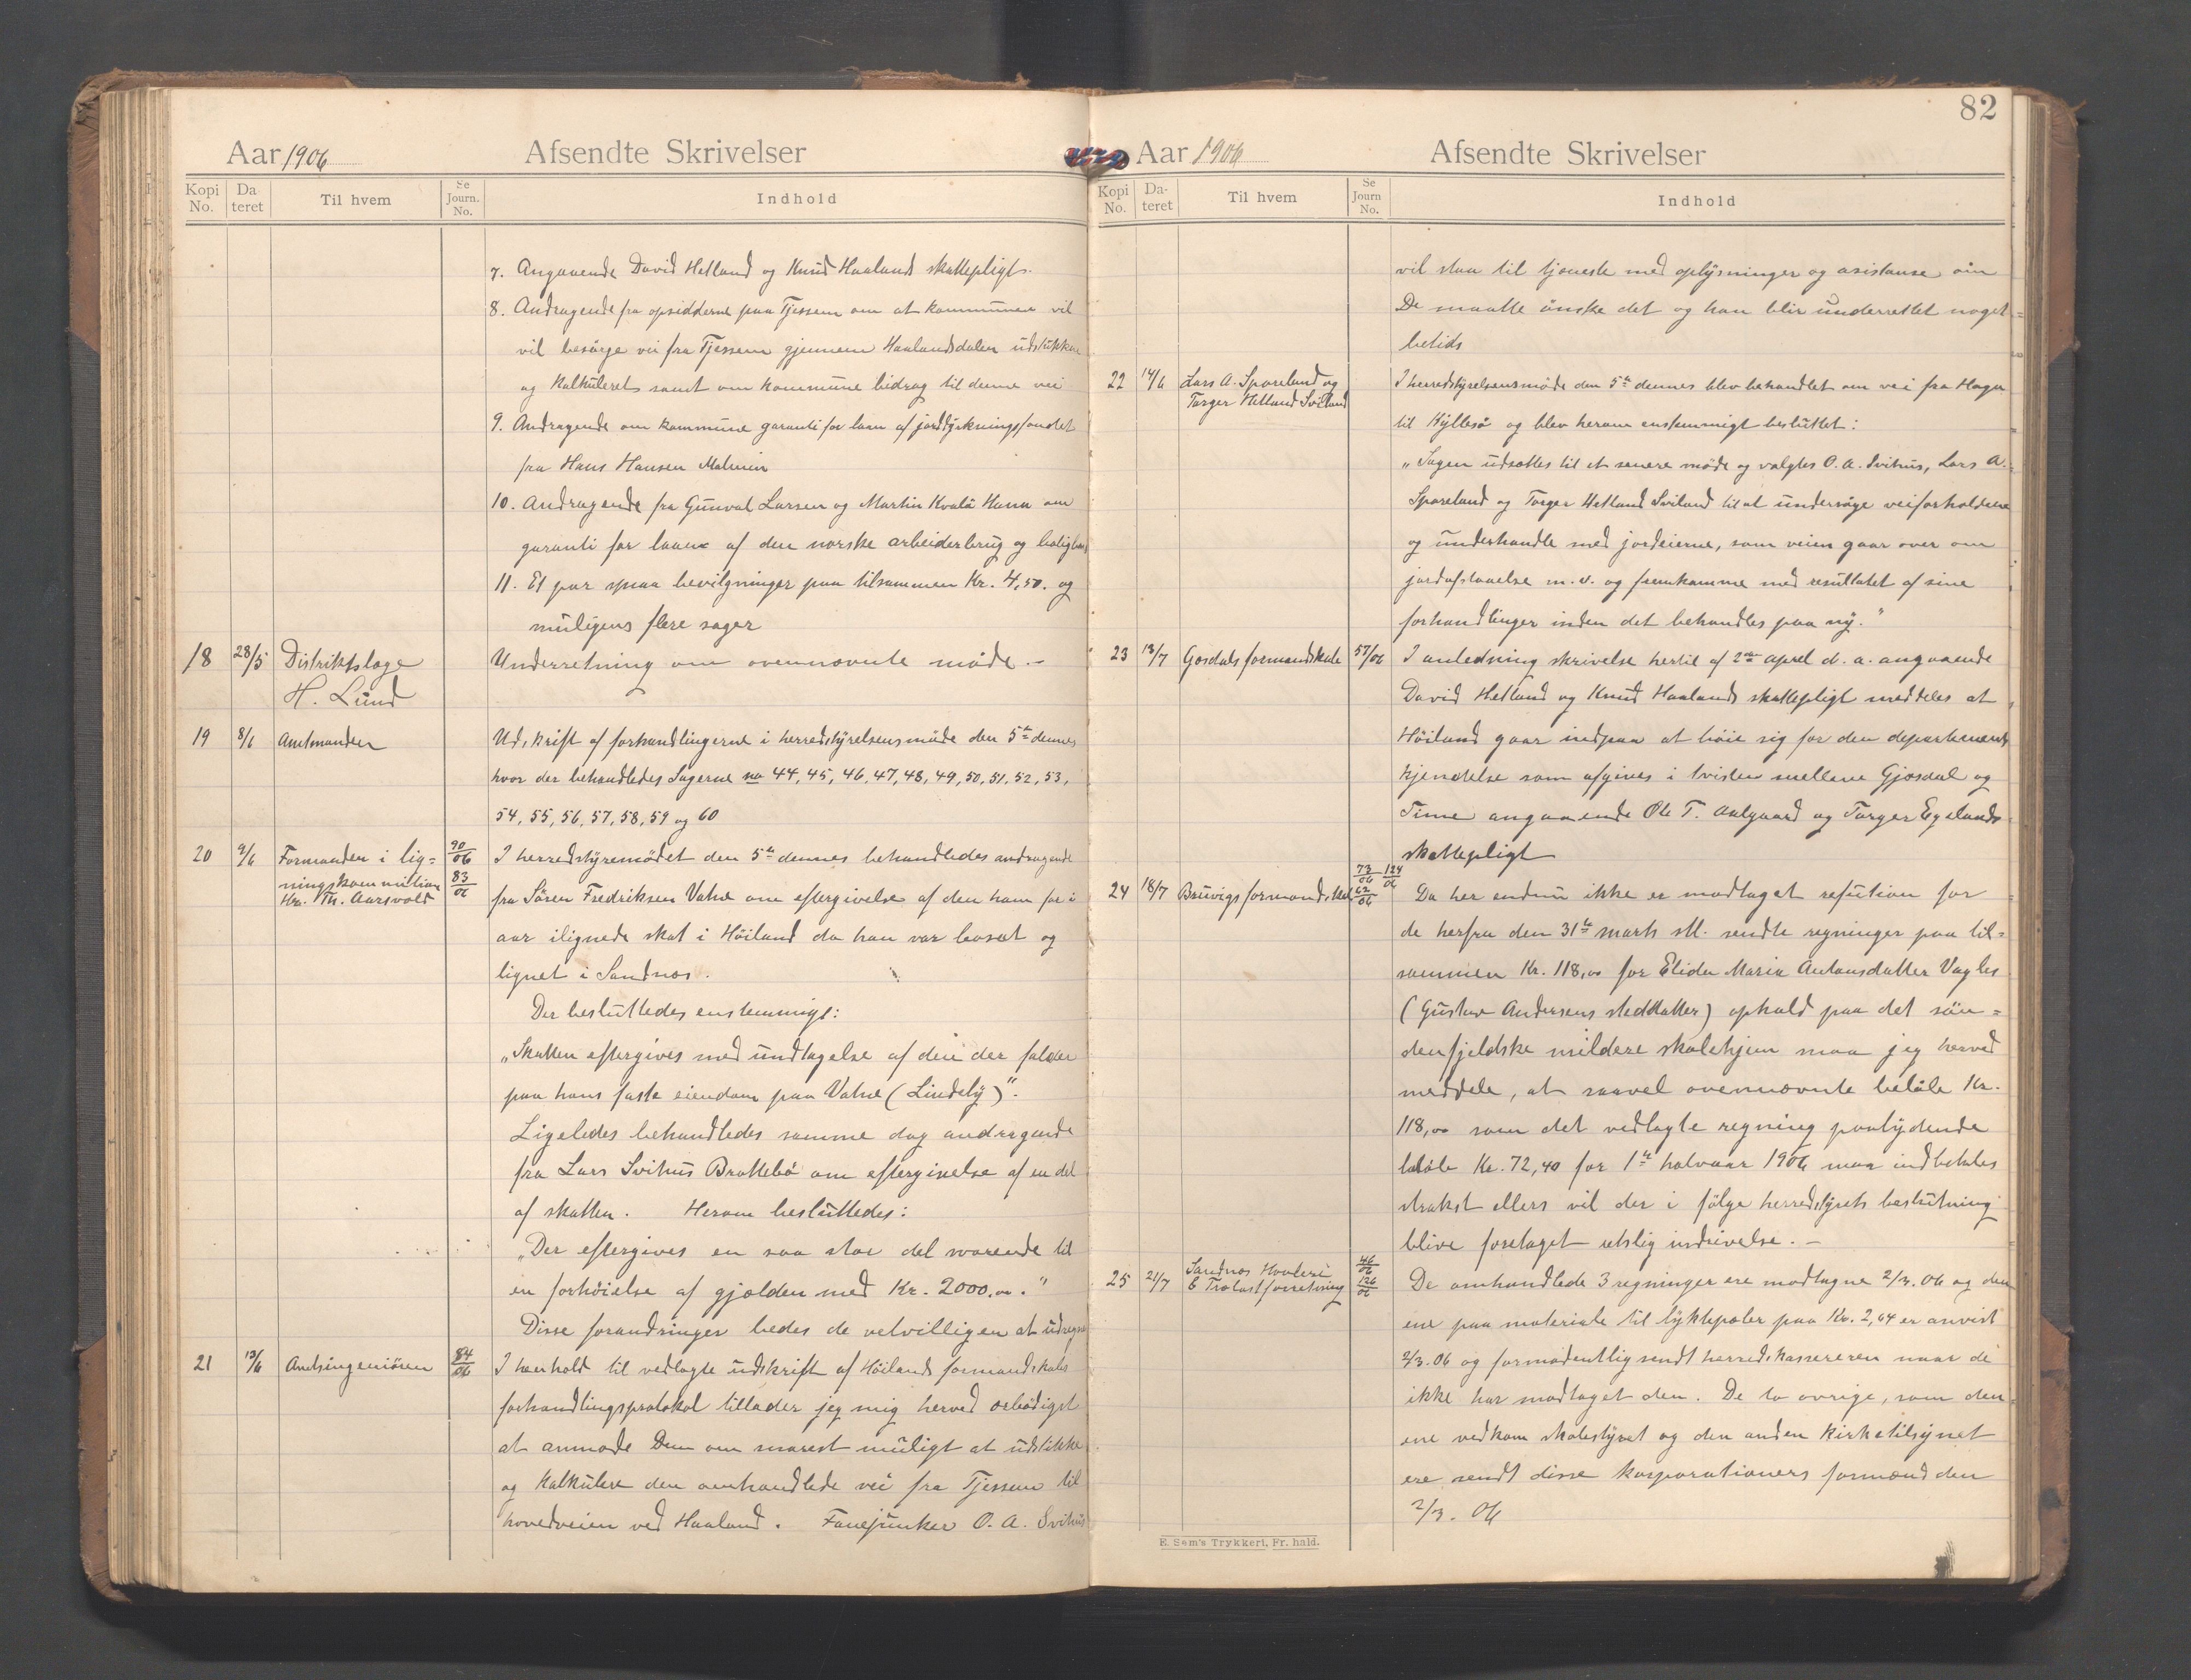 Aar 1906 Afsendte Skrivelser
Kopi No. Da teret Til hvem Se Journ. No. Indhold
7. Angaaende David Hetland og Knud Haalands skattepligt.
8. Andragende fra opsidderne paa Tjessem om at kommunen vil
vil besörge vei fra Tjessem gjennem Haalandsdalen udstukket
og kalkuleret samt om kommune bidrag til denne vei
9. Andragende om kommune garanti for laan af jorddyrkningsfondet
fra Hans Hansen Malmin
10. Andragende fra Gunval Larsen og Martin Kvalö Hana om
garanti for laan af den norske arbeiderbrug og
11. Et par smaa bevilgninger paa tilsammen Kr. 4,50. og
muligens flere sager
18 28/5 Distriktslæge Underretning om ovennævnte möde.-
H. Lund
19 8/6 Amtmanden Udskrift af forhandlingerne i herredstyrelsensmöde den 5te dennes
hvor der behandledes Sagerne no 44, 45, 46, 47, 48, 49, 50, 51, 52, 53,
54, 55, 56, 57, 58, 59 og 60
20 9/6 Formanden i lig= 90/06 I herredstyremödet den 5te dennes behandledes andragende
ningskommission 83/06
Hr. Th. Aarsvold fra Sören Fredriksen Vatne om eftergivelse af den ham for i
aar ilignede skat i Höiland da han var bosat og
lignet i Sandnæs.
Der besluttedes enstemmigt:
„Skatten eftergives med undtagelse af den der falder
paa hans faste eiendom paa Vatne (Lindeby)".
Ligeledes behandledes samme dag andragende
fra Lars Svihus Brattebö om eftergivelse af en del
af skatten. Herom besluttedes:
„Der eftergives en saa stor del svarende til
en forhöielse af gjælden med Kr. 2000,00."
Disse forandringer bedes de velvilligen at udregne
21 13/6 Amtsingeniören 84/06 I henhold til vedlagte udskrift af Höilands formandskabs
forhandlingsprotokol tillader jeg mig herved ærbödigst
at anmode Dem om snarest muligt at udstikke
og kalkulere den omhandlede vei fra Tjessem til
hovedveien ved Haaland. Fanejunker O. A. Svihus
82
Aar 1906 Afsendte Skrivelser
Kopi No. Da- teret Til hvem Se Journ No. Indhold
vil staa til tjeneste med oplysninger og asistanse om
De maatte önske det og han blir underrettet noget=
betids
22 14/6 Lars A. Sporeland og I herredstyrelsensmöde den 5te dennes blev behandlet om vei fra Hogn
Torger Hetland Sviland
til Hyllesö og blev herom enstemmigt besluttet:
„Sagen udsættes til et senere möde og valgtes O. A. Svihus, Lars A.
Sporeland og Torger Hetland Sviland til at undersöge veiforholdene
og underhandle med jordeierne, som veien gaar over om
jordafstaaelse m. v. og fremkomme med resultatet af sine
forhandlinger inden det behandles paa ny."
23 13/7 Gjesdals formandskab 57/06 I anledning skrivelse hertil af 2den april d. a. angaaende
David Hetland og Knud Haalands skattepligt meddeles at
Höiland gaar indpaa at böie sig for den departements
kjendelse som afgives i tvisten mellem Gjesdal og
Time angaaende Ole T. Aalgaard og Torger Egelands
skattepligt
73/06 124/06
24 18/7 Bruvigs formandskab 62/06 Da her endnu ikke er modtaget refution for
de herfra den 31te marts sll. sendte regninger paa til=
sammen Kr. 118,00 for Elida Maria Antonsdatter Vagles
(Gustav Andersens steddatter) ophold paa det sön=
denfjeldske mildere skolehjem maa jeg herved
meddele, at saavel ovennævnte belöb Kr.
118,00 som det vedlagte regning paalydende
belöb Kr. 72,40 for 1te halvaar 1906 maa indbetales
strakst ellers vil der i fölge herredstyrets beslutning
blive foretaget retslig inddrivelse.-
25 21/7 Sandnæs Hövleri 46/06 De omhandlede 3 regninger ere modtagne 2/3. 06 og den
& Trælastforretning 126/06
ene paa materiale til lyktepæler paa Kr. 2,64 er anvist
2/3. 06 og formodentlig sendt herredskassereren naar de
ikke har modtaget den. De to övrige, som den
ene vedkom skolestyret og den anden kirketilsynet
ere sendt disse korporationers formænd den
2/3. 06
E. Sem's Trykkeri, Fr. hald.